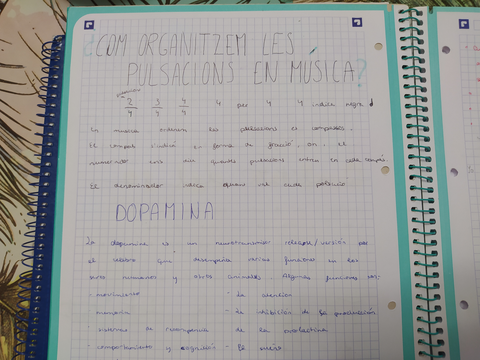 ¿COM ORGANITZEM LES
PULSACIONS EN MÚSICA?
2/4 3/4 4/4 4 per 4 4 indica negra
En música ordenem les pulsacions en compassos.
El compàs s'indica en forma de fracció, on el
numerador ens diu quantes pulsacions entren en cada compàs.
El denominador indica quant val cada pulsació
DOPAMINA
La dopamina es un neurotransmisor por
el cerebro que desempeña varias funciones en los
seres humanos y otros animales. Algunas funciones son:
- movimiento - la atención
- memoria - la inhibición de la producción
- sistemas de recompensa de la prolactina
- comportamiento y cognición - el sueño